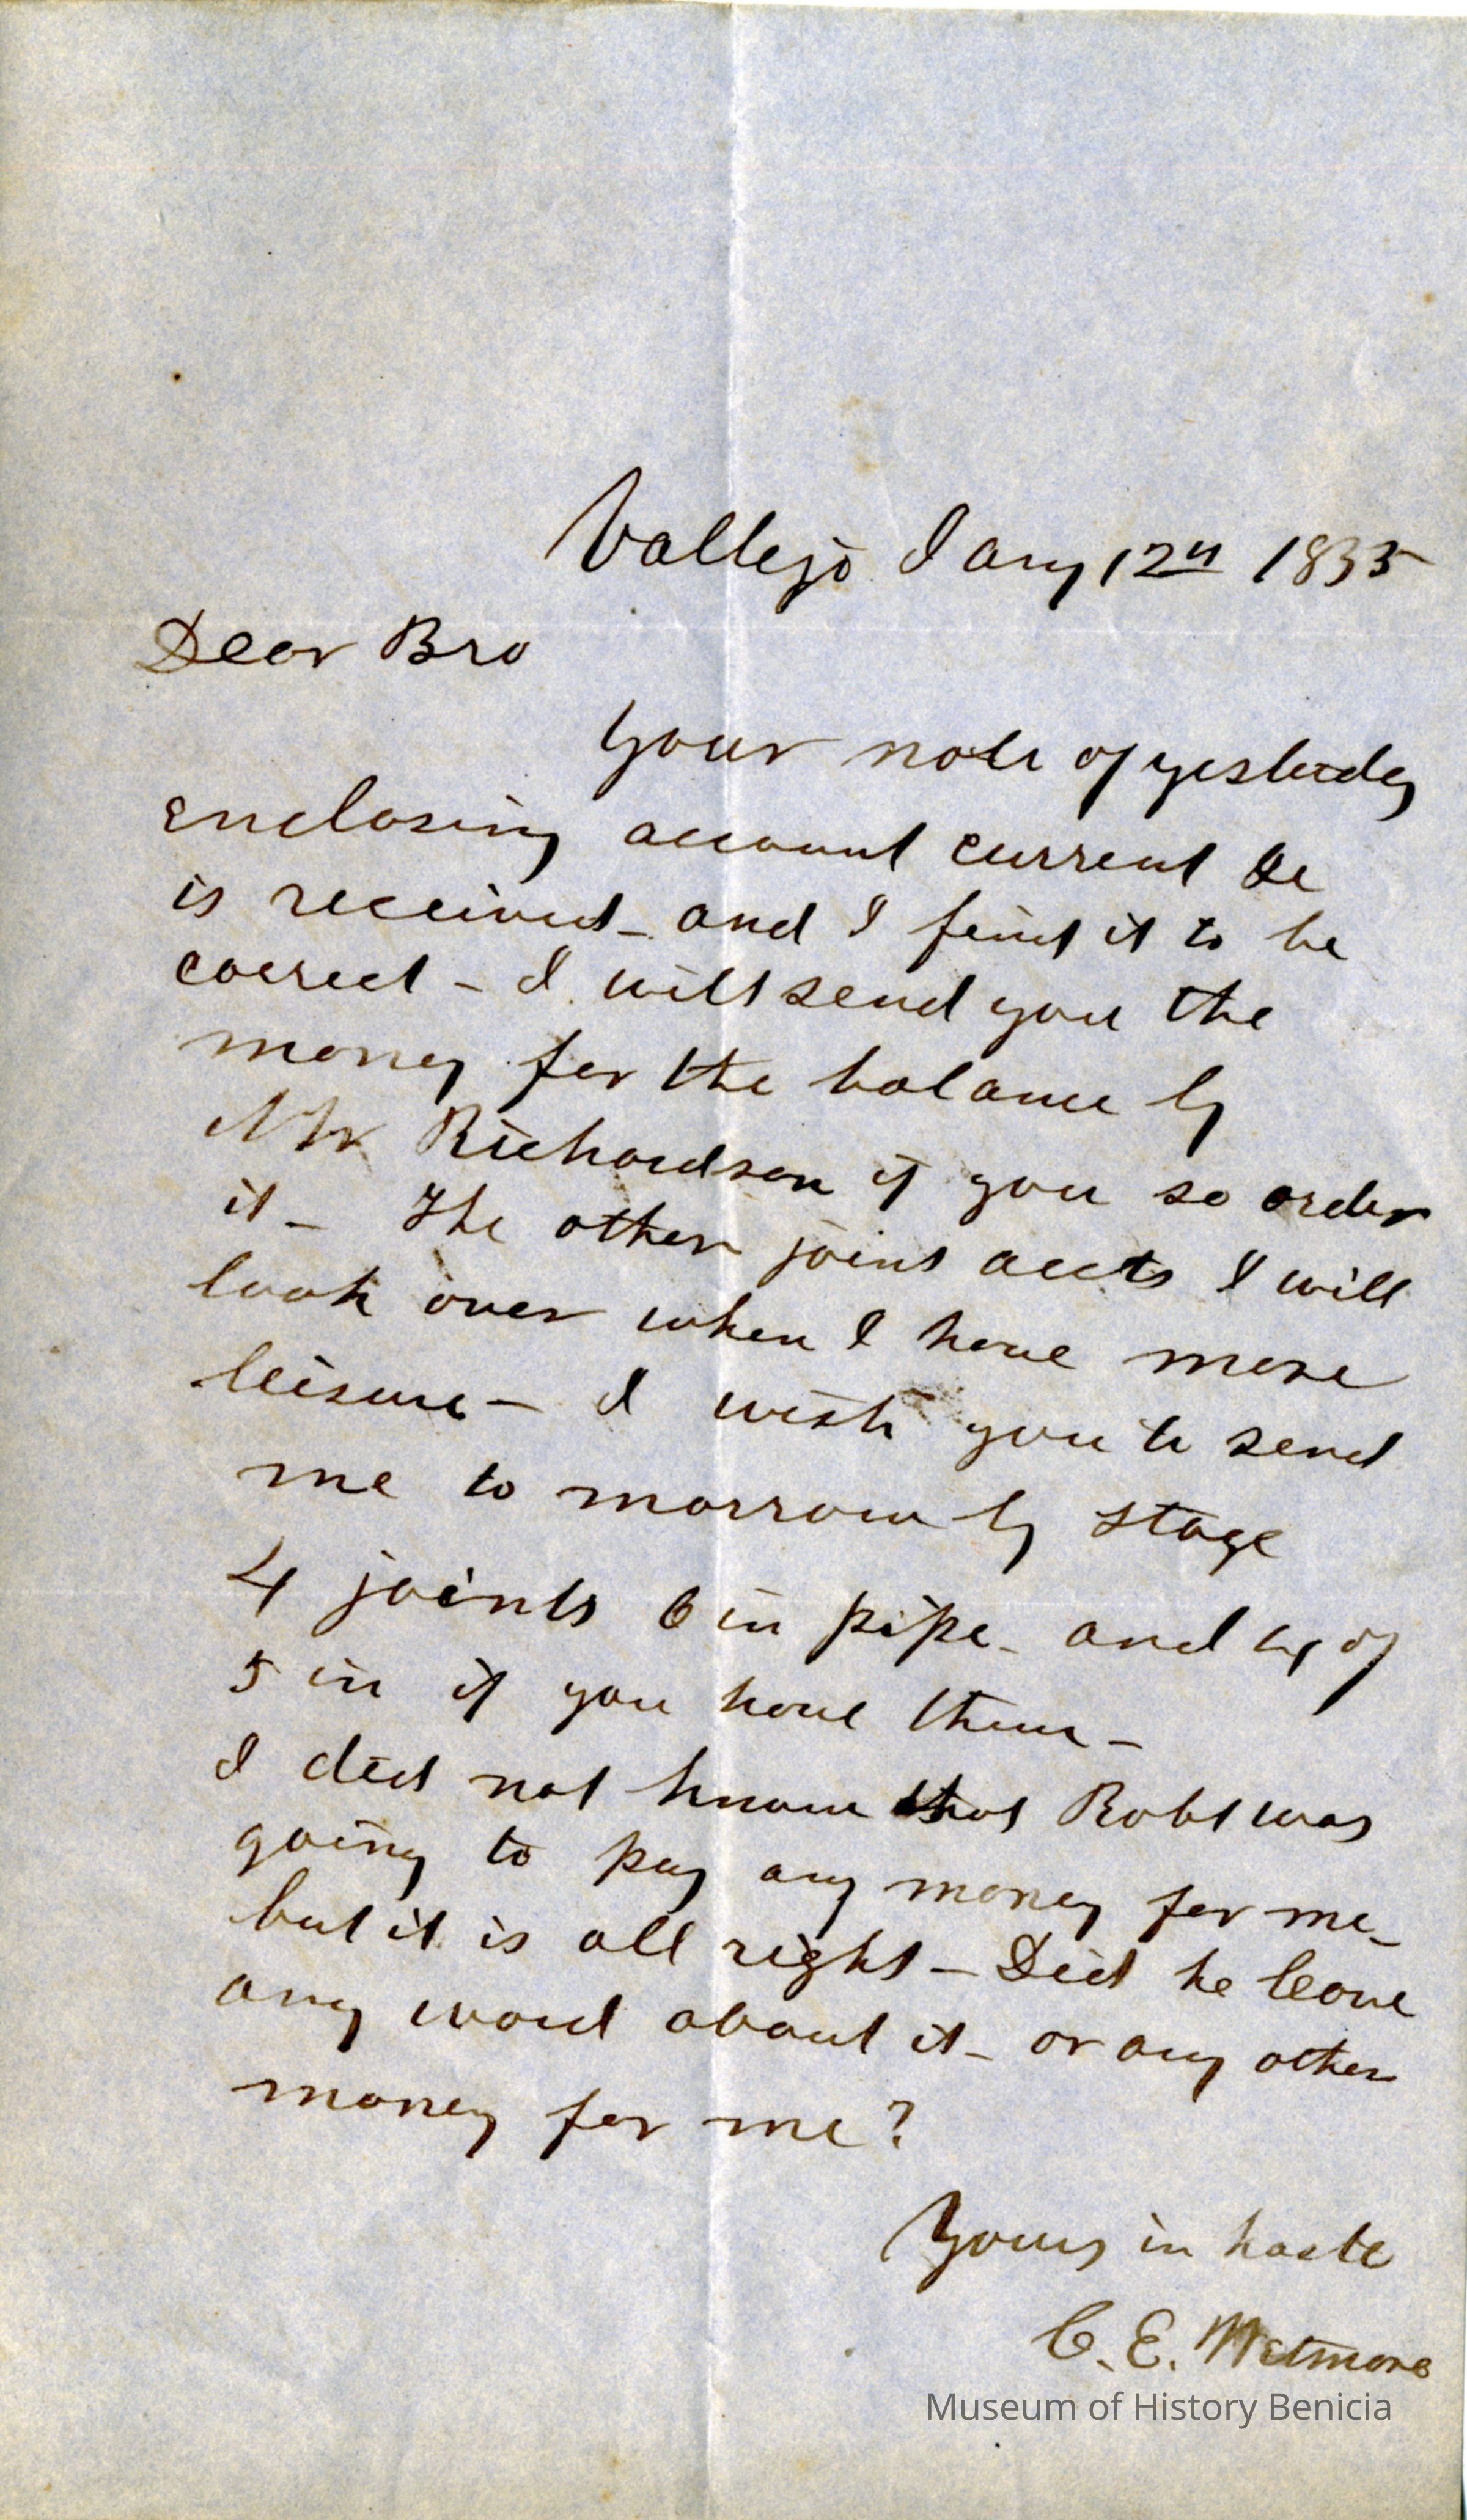 Vallejo Jany 12th 1855
Dear Bro
Your note of yesterday
enclosing account current &c
is received - and I find it to be
correct - I will send you the
money for the balance by
Mr Richardson if you so order
it - The other joint accts I will
look over when I have more
leisure - I wish you to send
me to morrow by stage
4 joints 6 in pipe - and 4 of
5 in if you have them -
I did not know that Robt was
going to pay any money for me -
but it is all right - Did he leave
any word about it - or any other
money for me?
Yours in haste
C. E. Wetmore
Museum of History Benicia